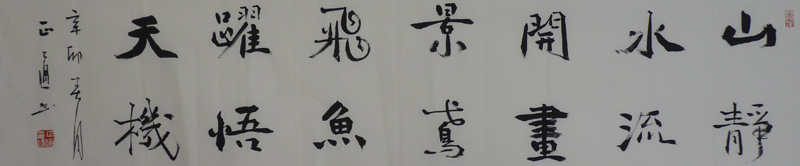 山靜
水流
開畫
景鳶
飛魚
躍悟
天機
辛卯春月